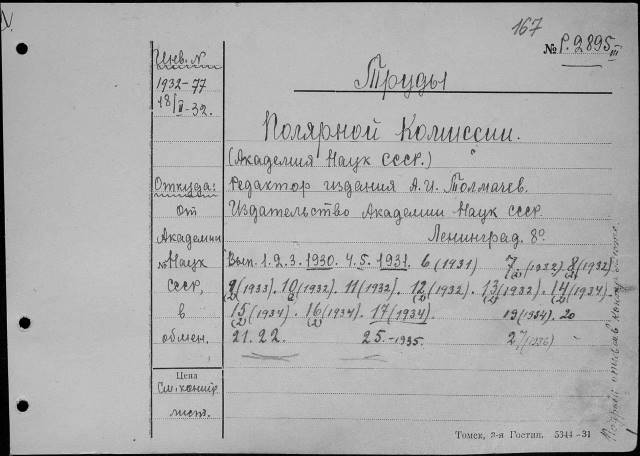 167
№ P.2895 III
Инв. №
1932-77
18/II-32.
Труды
Полярной Комиссии.
(Академия Наук СССР.)
Откуда:
от
Академии
Наук
СССР,
в
обмен.
Редактор издания А.И. Толмачев.
Издательство Академии Наук СССР.
Ленинград. 8°.
Вып. 1. 2. 3. 1930. 4. 5. 1931. 6 (1931) 7 (2) (1932) 8 (2) (1932)
9 (2) (1933). 10 (2) (1932). 11 (1932). 12 (2) (1932). 13 (2) (1932). 14 (2) (1934).
15 (2) (1934). 16 (2) (1934). 17 (1934). 19 (1934). 20
21. 22. 25.-1935. 27 (1936)
Цена
См. контр.
лист.
Томск, 2-я Гостип. 5344-31